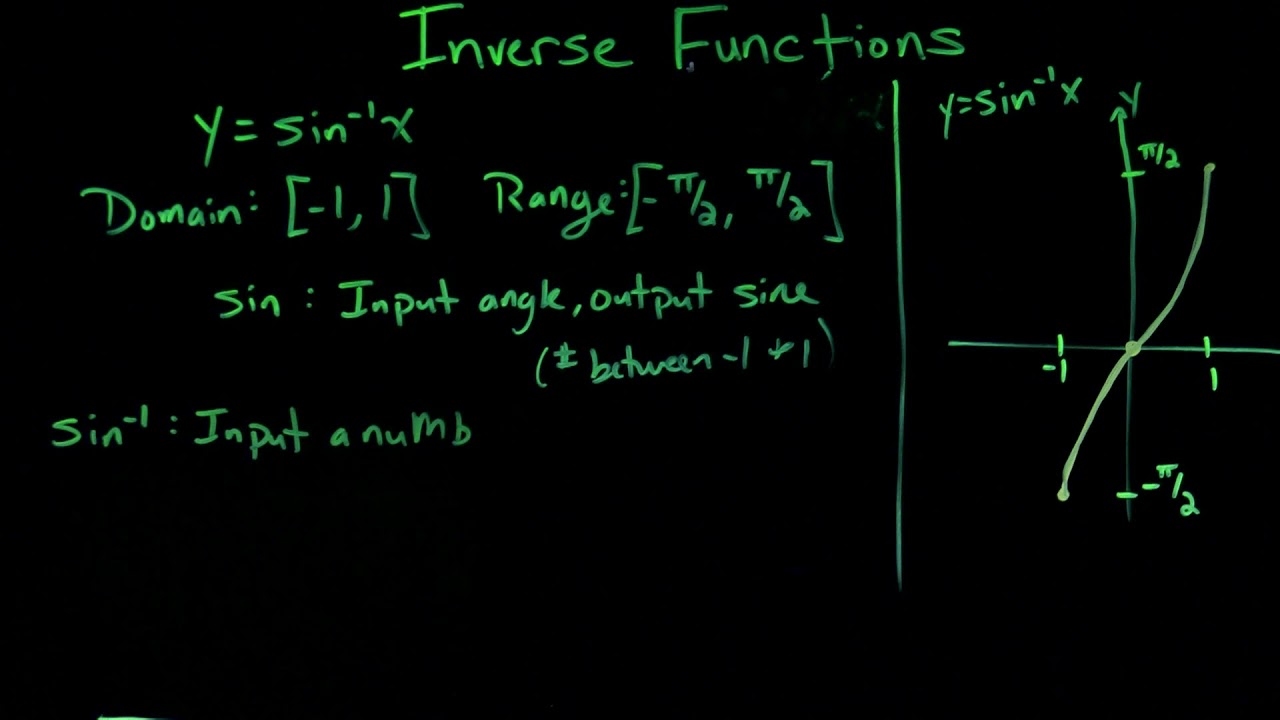 Inverse Functions
y = sin⁻¹x
Domain: [-1, 1] Range: [-π/2, π/2]
sin : Input angle, output sine
(# between -1 + 1)
sin⁻¹ : Input a numb
y=sin⁻¹x
y
π/2
-1
1
-π/2